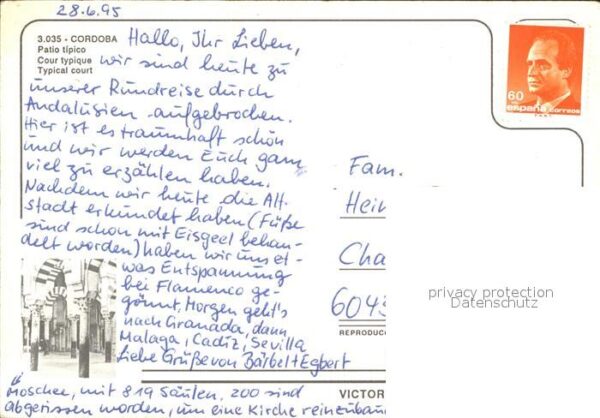 28.6.95
3.035 - CORDOBA
Patio típico
Cour typique
Typical court
Hallo, Ihr Lieben,
wir sind heute zu
unserer Rundreise durch
Andalusien aufgebrochen.
Hier ist es traumhaft schön
und wir werden Euch ganz
viel zu erzählen haben.
Nachdem wir heute die Alt-
stadt erkundet haben (Füße
sind schon mit Eisgeel behan-
delt worden) haben wir uns et-
was Entspannung
bei Flamenco ge-
gönnt. Morgen geht's
nach Granada, dann
Malaga, Cadiz, Sevilla
Liebe Grüße von Bärbel + Egbert
Moschee, mit 819 Säulen, 200 sind
abgerissen worden, um eine Kirche reinzubau
60
españa correos
Fam.
Hein
Cha
6043
privacy protection
Datenschutz
REPRODUC
VICTOR